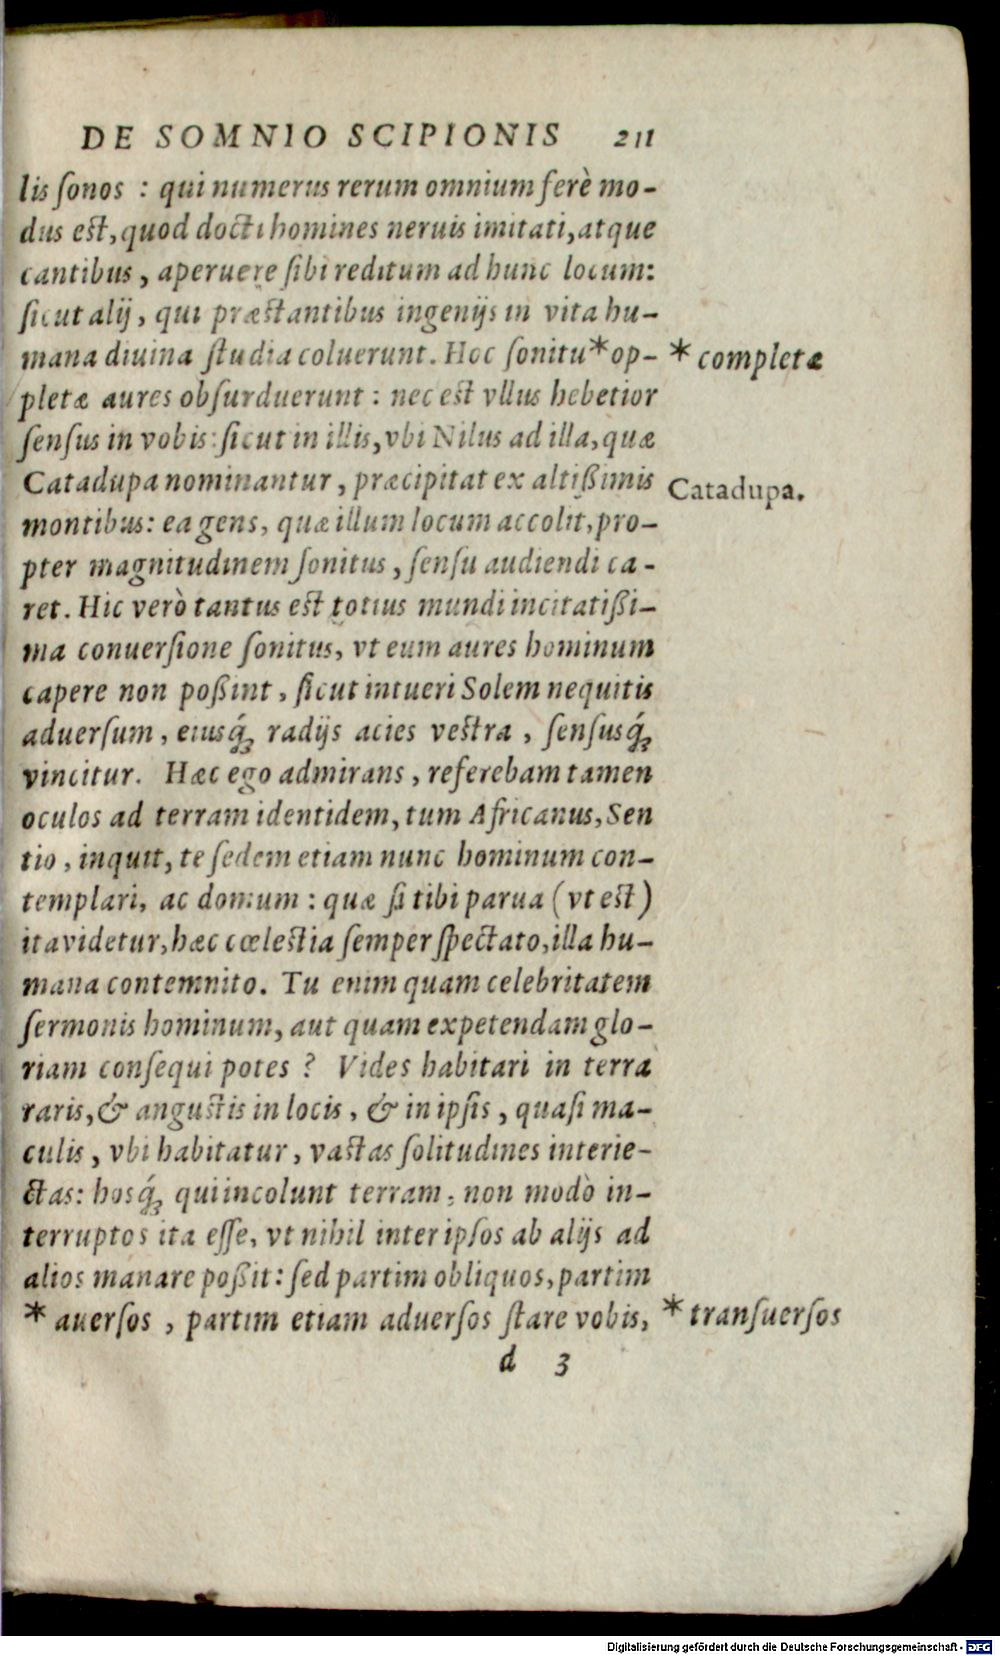 DE SOMNIO SCIPIONIS 211
lis ſonos : qui numerus rerum omnium ferè mo-
dus eſt, quod docti homines neruis imitati, atque
cantibus, aperuere ſibi reditum ad hunc locum:
ſicut alij, qui præſtantibus ingenijs in vita hu-
mana diuina ſtudia coluerunt. Hoc ſonitu * op-
* completæ
pletæ aures obſurduerunt : nec eſt vllus hebetior
ſenſus in vobis: ſicut in illis, vbi Nilus ad illa, quæ
Catadupa nominantur, præcipitat ex altißimis
Catadupa.
montibus: ea gens, quæ illum locum accolit, pro-
pter magnitudinem ſonitus, ſenſu audiendi ca-
ret. Hic verò tantus eſt totius mundi incitatißi-
ma conuerſione ſonitus, vt eum aures hominum
capere non poßint, ſicut intueri Solem nequitis
aduerſum, eiusq́; radijs acies veſtra, ſenſusq́;
vincitur. Hæc ego admirans, referebam tamen
oculos ad terram identidem, tum Africanus, Sen
tio, inquit, te ſedem etiam nunc hominum con-
templari, ac domum : quæ ſi tibi parua (vt eſt)
ita videtur, hæc cœleſtia ſemper ſpectato, illa hu-
mana contemnito. Tu enim quam celebritatem
ſermonis hominum, aut quam expetendam glo-
riam conſequi potes ? Vides habitari in terra
raris, & anguſtis in locis, & in ipſis, quaſi ma-
culis, vbi habitatur, vaſtas ſolitudines interie-
ctas: hosq́; qui incolunt terram, non modò in-
terruptos ita eſſe, vt nihil inter ipſos ab alijs ad
alios manare poßit: ſed partim obliquos, partim
* auerſos, partim etiam aduerſos ſtare vobis,
* tranſuerſos
d 3
Digitalisierung gefördert durch die Deutsche Forschungsgemeinschaft - DFG